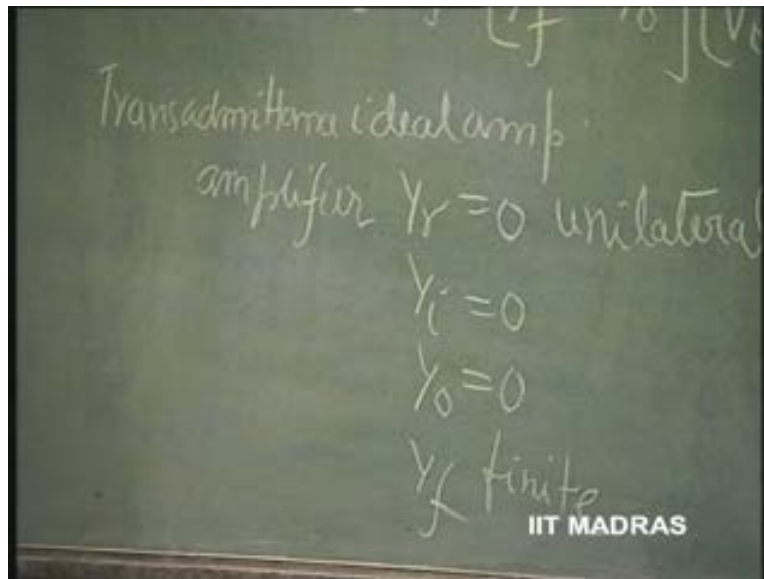 [Yf Yo](Vo
Transadmittance ideal amp
amplifier Yr = 0 unilateral
Yi = 0
Yo = 0
Yf finite
IIT MADRAS